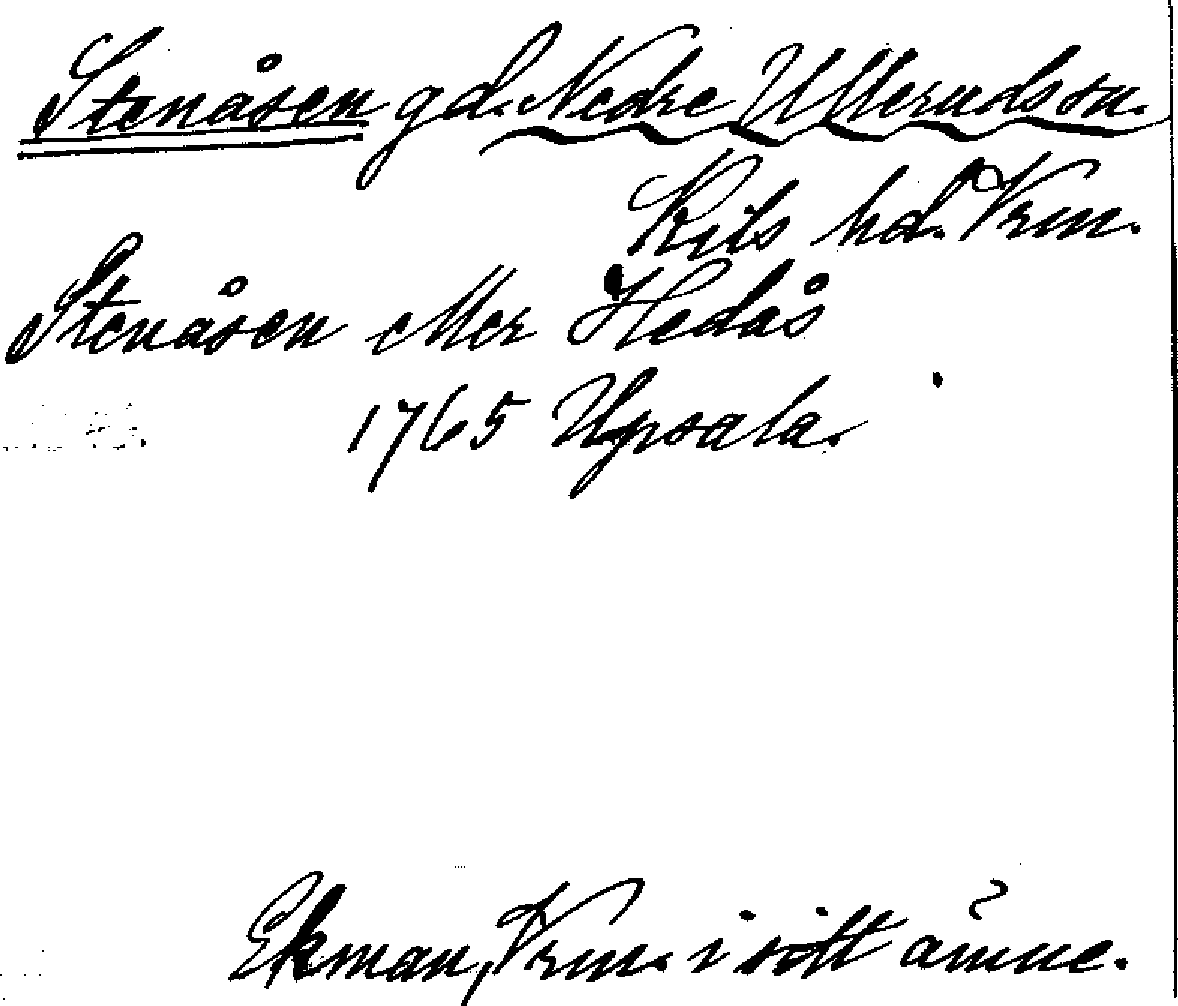 Stenåsen gd. Nedre Ulleruds sn.
Kils hd. Vrm.
Stenåsen eller Hedås
1765 Upsala.
Ekman, Vrm. i sitt ämne.